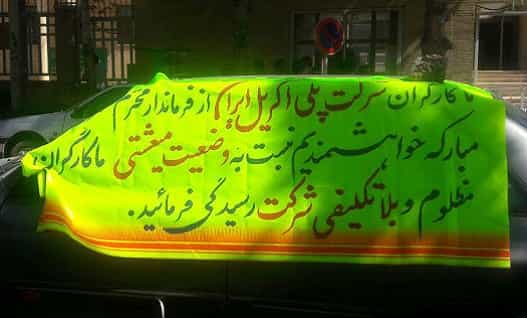 ما کارگران شرکت پلی اکریل ایران از فرماندار محترم
مبارکه خواهشمندیم نسبت به وضعیت معیشتی ما کارگران
مظلوم و بلاتکلیفی شرکت رسیدگی فرمائید.